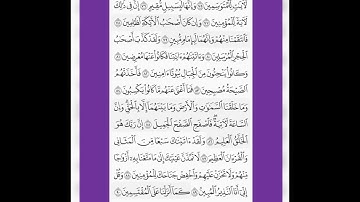 لَآيَاتٍ لِّلْمُتَوَسِّمِينَ ٧٥ وَإِنَّهَا لَبِسَبِيلٍ مُّقِيمٍ ٧٦ إِنَّ فِي ذَٰلِكَ
لَآيَةً لِّلْمُؤْمِنِينَ ٧٧ وَإِن كَانَ أَصْحَٰبُ ٱلْأَيْكَةِ لَظَٰلِمِينَ ٧٨
فَٱنتَقَمْنَا مِنْهُمْ وَإِنَّهُمَا لَبِإِمَامٍ مُّبِينٍ ٧٩ وَلَقَدْ كَذَّبَ أَصْحَٰبُ
ٱلْحِجْرِ ٱلْمُرْسَلِينَ ٨٠ وَءَاتَيْنَٰهُمْ ءَايَٰتِنَا فَكَانُوا۟ عَنْهَا مُعْرِضِينَ ٨١
وَكَانُوا۟ يَنْحِتُونَ مِنَ ٱلْجِبَالِ بُيُوتًا ءَامِنِينَ ٨٢ فَأَخَذَتْهُمُ
ٱلصَّيْحَةُ مُصْبِحِينَ ٨٣ فَمَآ أَغْنَىٰ عَنْهُم مَّا كَانُوا۟ يَكْسِبُونَ ٨٤
وَمَا خَلَقْنَا ٱلسَّمَٰوَٰتِ وَٱلْأَرْضَ وَمَا بَيْنَهُمَآ إِلَّا بِٱلْحَقِّ وَإِنَّ
ٱلسَّاعَةَ لَآتِيَةٌ فَٱصْفَحِ ٱلصَّفْحَ ٱلْجَمِيلَ ٨٥ إِنَّ رَبَّكَ هُوَ
ٱلْخَلَّٰقُ ٱلْعَلِيمُ ٨٦ وَلَقَدْ ءَاتَيْنَٰكَ سَبْعًا مِّنَ ٱلْمَثَانِي
وَٱلْقُرْءَانَ ٱلْعَظِيمَ ٨٧ لَا تَمُدَّنَّ عَيْنَيْكَ إِلَىٰ مَا مَتَّعْنَا بِهِۦٓ أَزْوَٰجًا
مِّنْهُمْ وَلَا تَحْزَنْ عَلَيْهِمْ وَٱخْفِضْ جَنَاحَكَ لِلْمُؤْمِنِينَ ٨٨ وَقُلْ
إِنِّيٓ أَنَا ٱلنَّذِيرُ ٱلْمُبِينُ ٨٩ كَمَآ أَنزَلْنَا عَلَى ٱلْمُقْتَسِمِينَ ٩٠